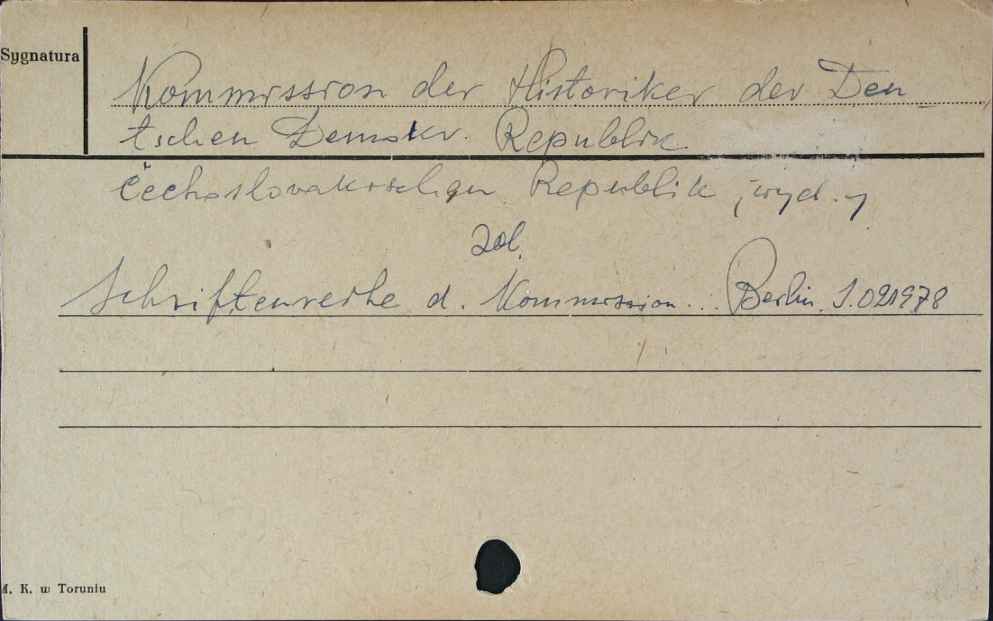 Sygnatura
Kommission der Historiker der Deu
tschen Demokr. Republik
Čechoslovakischen Republik, wyd. 7
zob.
Schriftenreihe d. Kommission... Berlin. S.021978
M. K. w Toruniu